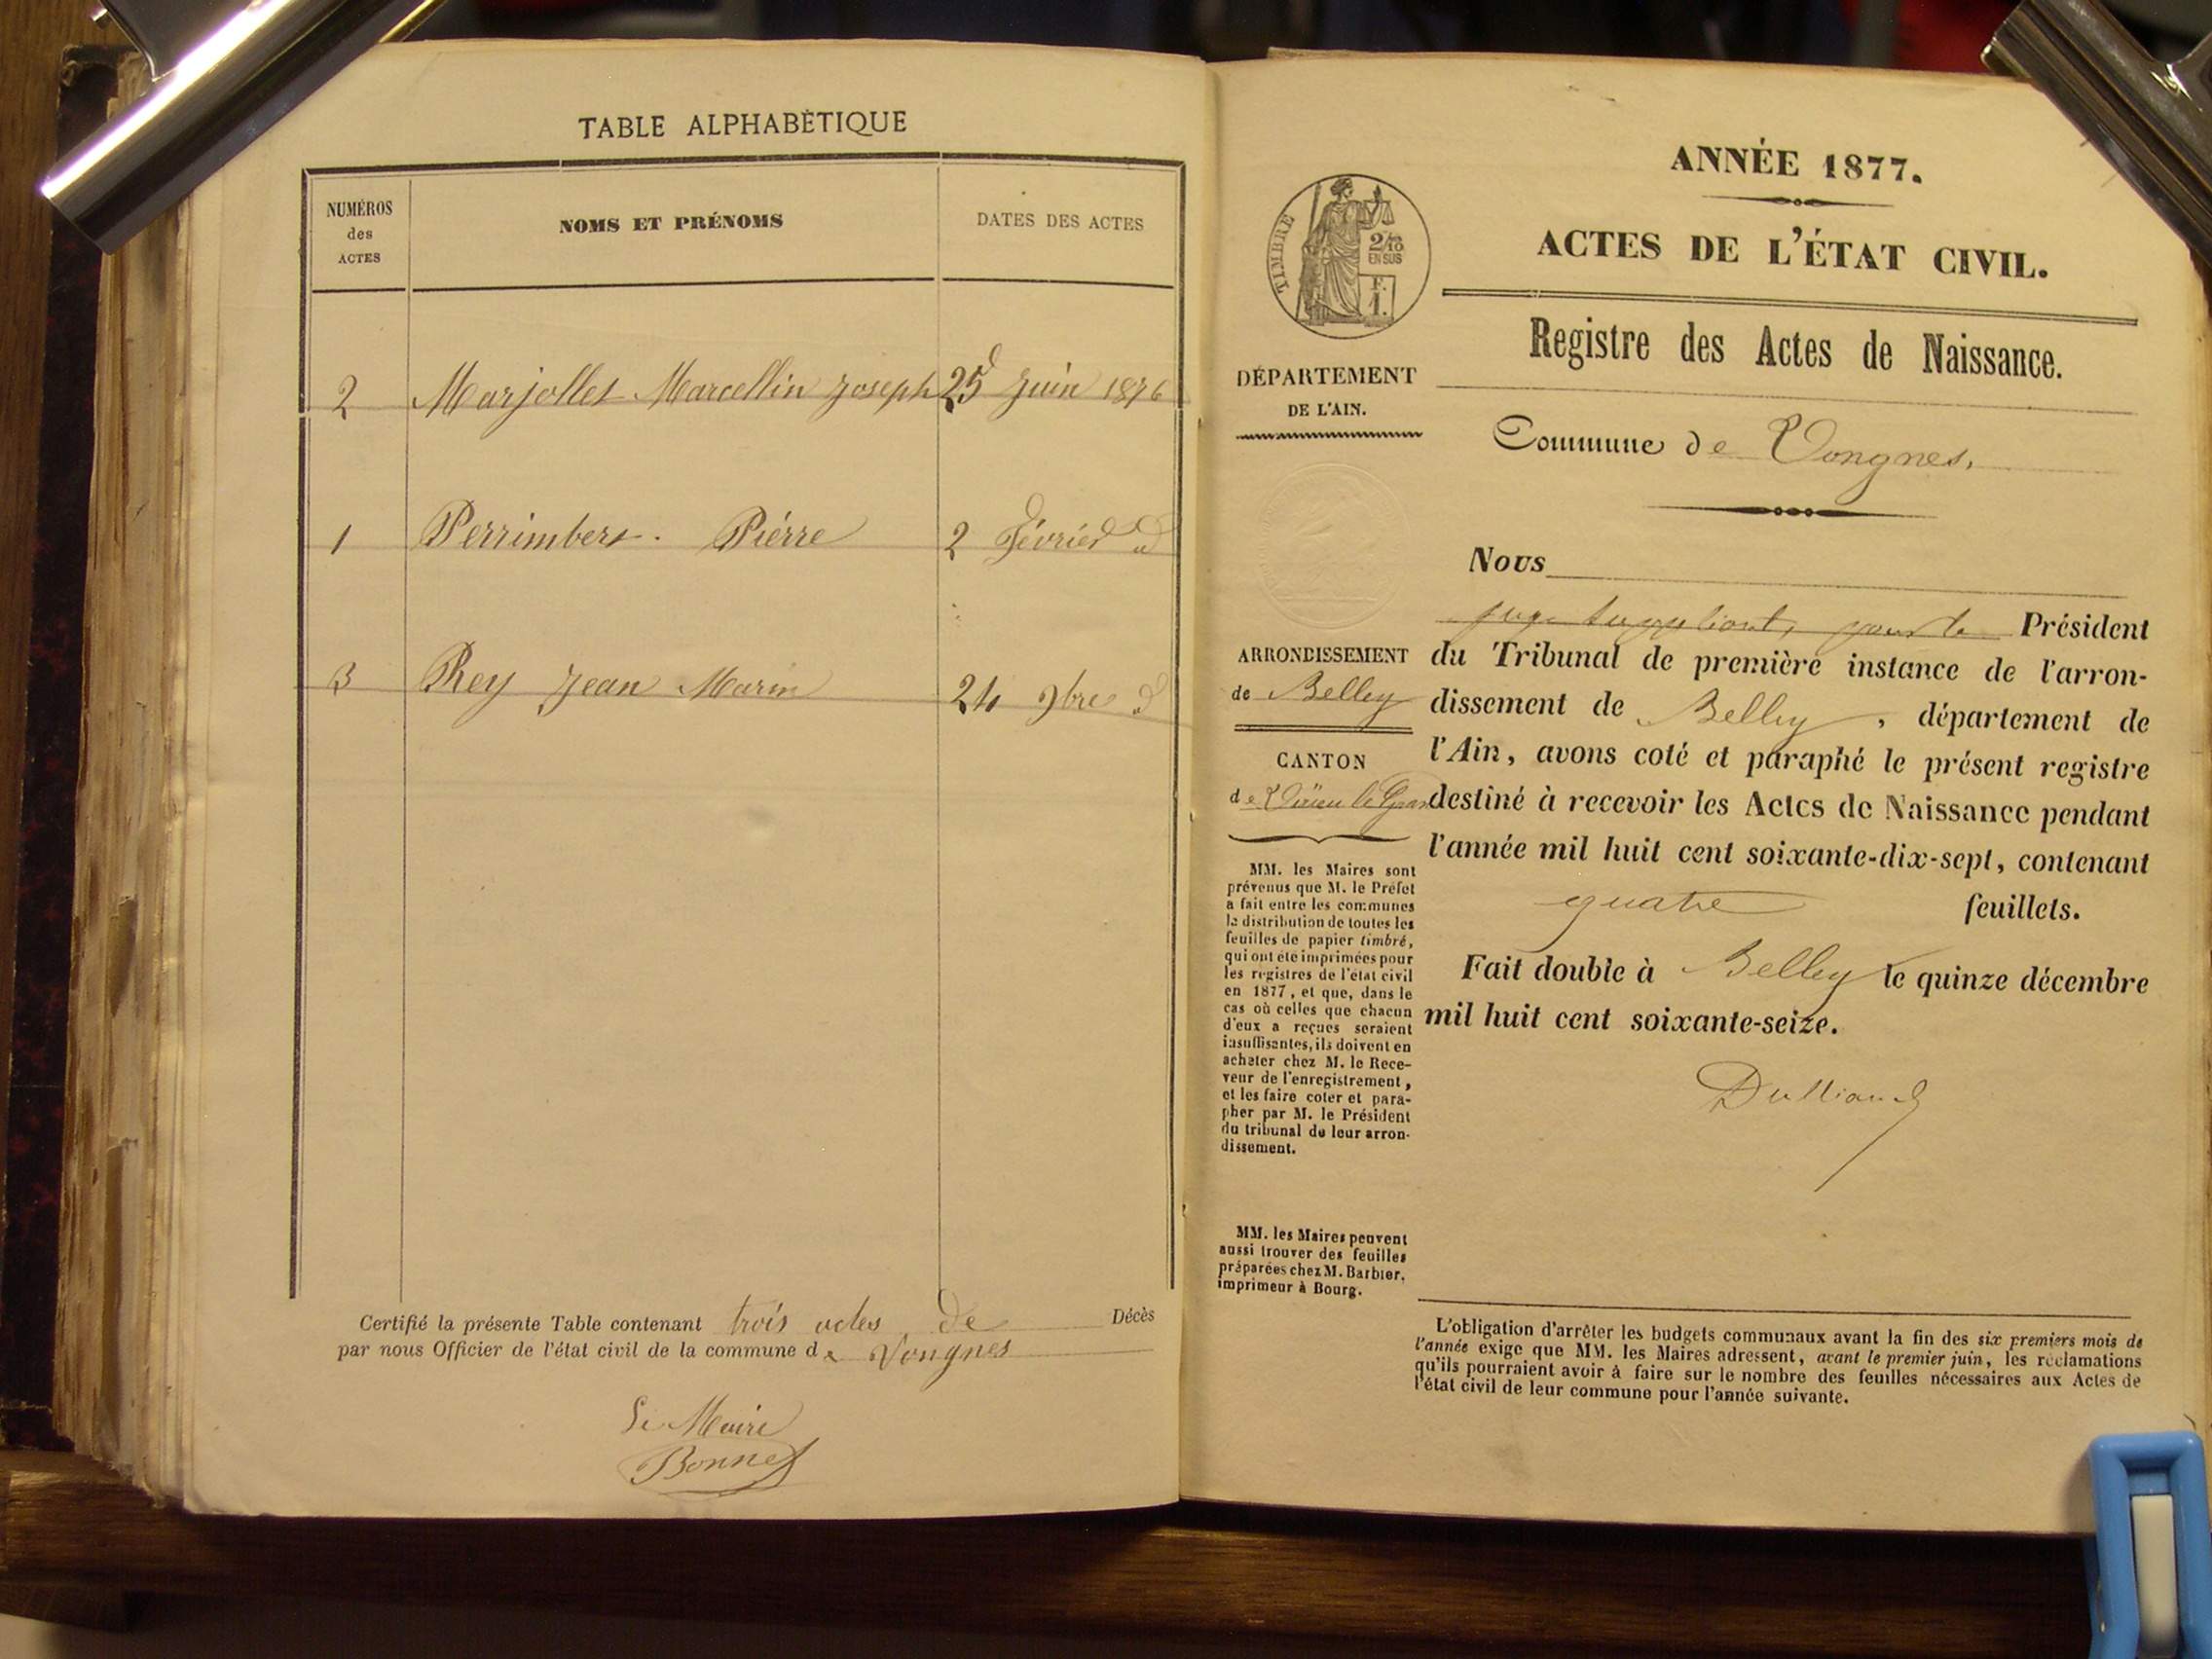 TABLE ALPHABÉTIQUE
NUMÉROS
des
ACTES
NOMS ET PRÉNOMS
DATES DES ACTES
2 Marjollet Marcellin Joseph 25 Juin 1876
1 Perrimbert. Pierre 2 Février d
3 Rey Jean Marin 24 9bre d
Certifié la présente Table contenant trois actes de Décès
par nous Officier de l'état civil de la commune de Vongnes
Le Maire
Bonnet
ANNÉE 1877.
ACTES DE L'ÉTAT CIVIL.
TIMBRE
2/10
EN SUS
F.
1.
Registre des Actes de Naissance.
DÉPARTEMENT
DE L'AIN.
Commune de Vongnes.
Nous
juge suppléant, pour le Président
du Tribunal de première instance de l'arron-
dissement de Belley, département de
l'Ain, avons coté et paraphé le présent registre
destiné à recevoir les Actes de Naissance pendant
l'année mil huit cent soixante-dix-sept, contenant
quatre feuillets.
Fait double à Belley le quinze décembre
mil huit cent soixante-seize.
Dulliand
ARRONDISSEMENT
de Belley
CANTON
de Virieu le Grand
MM. les Maires sont
prévenus que M. le Préfet
a fait entre les communes
la distribution de toutes les
feuilles de papier timbré,
qui ont été imprimées pour
les registres de l'état civil
en 1877, et que, dans le
cas où celles que chacun
d'eux a reçues seraient
insuffisantes, ils doivent en
acheter chez M. le Rece-
veur de l'enregistrement,
et les faire coter et para-
pher par M. le Président
du tribunal de leur arron-
dissement.
MM. les Maires peuvent
aussi trouver des feuilles
préparées chez M. Barbier,
imprimeur à Bourg.
L'obligation d'arrêter les budgets communaux avant la fin des six premiers mois de
l'année exige que MM. les Maires adressent, avant le premier juin, les réclamations
qu'ils pourraient avoir à faire sur le nombre des feuilles nécessaires aux Actes de
l'état civil de leur commune pour l'année suivante.